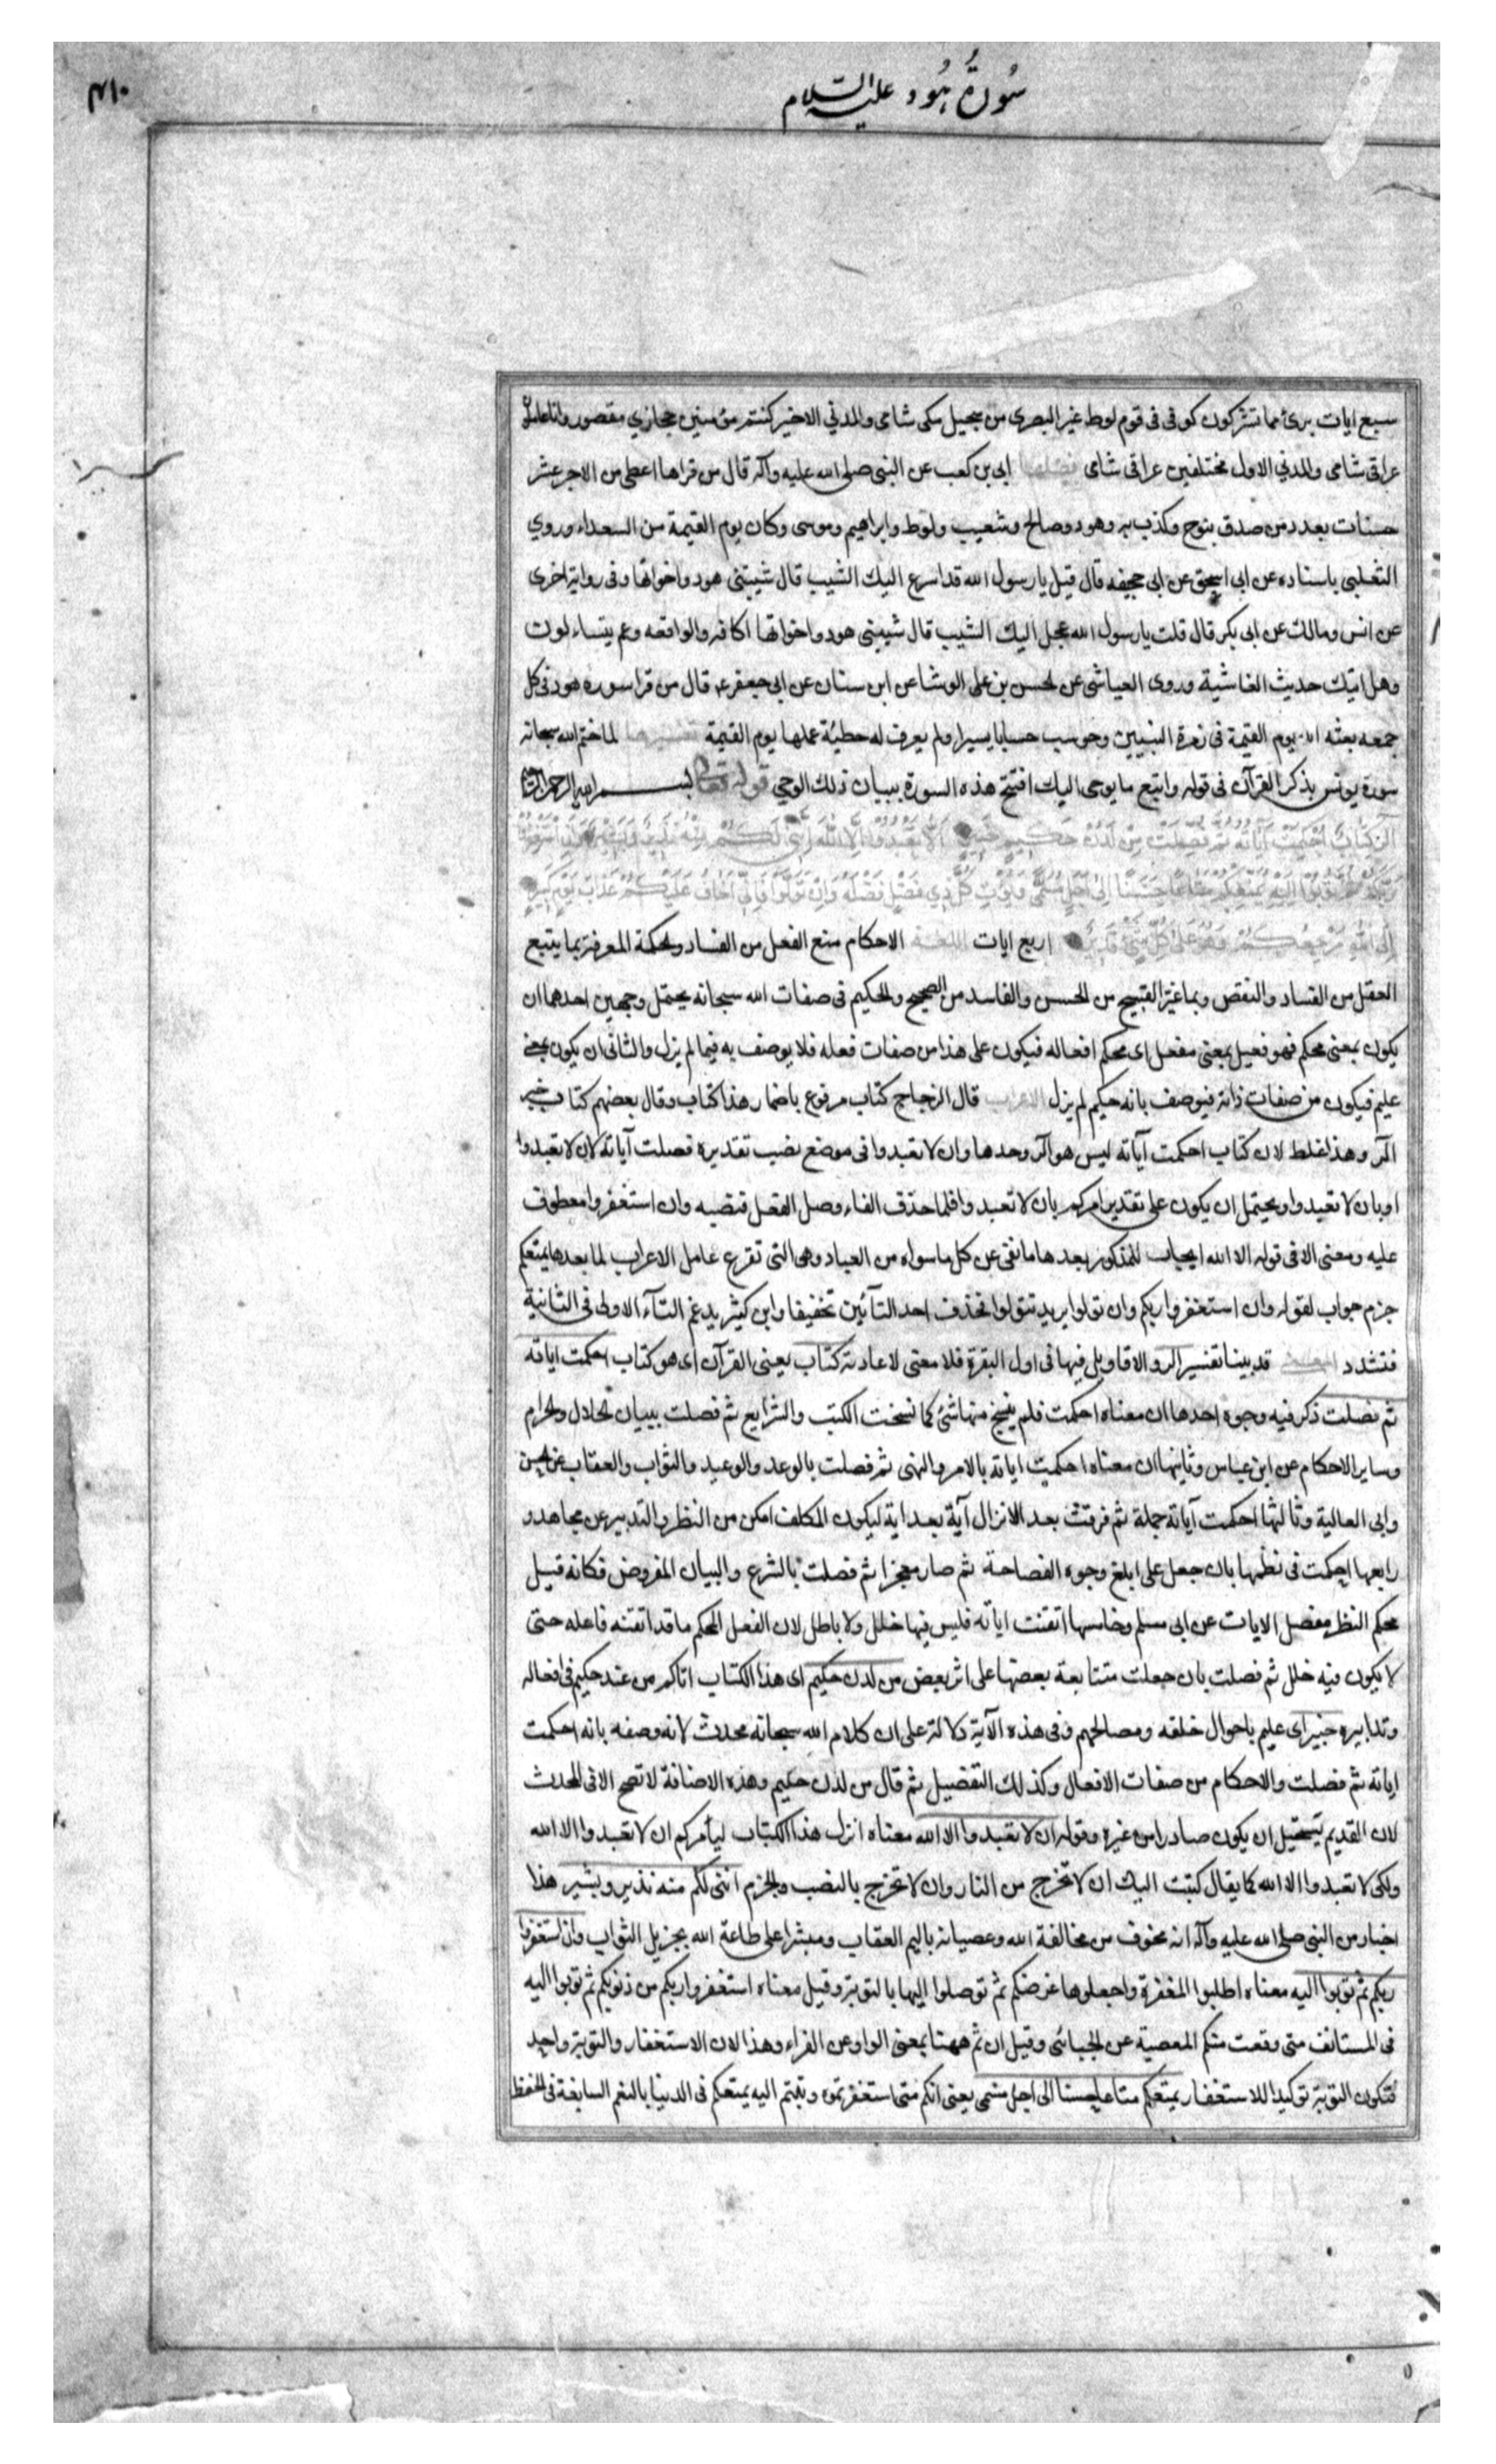 سورة هود عليه السلام
سبع ايات برئ مما تشركون كوفى فى قوم لوط غير البصرى من سجيل مكى شامى والمدني الاخير كنتم مؤمنين حجازي مقصور وانا عاملون
عراقى شامى والمدني الاول مختلفين عراقى شامى فضلها ابى بن كعب عن النبى صلى الله عليه وآله قال من قراها اعطى من الاجر عشر
حسنات بعدد من صدق بنوح وكذب به وهود وصالح وشعيب ولوط وابراهيم وموسى وكان يوم القيمة من السعداء وروي
الثعلبى باسناده عن ابى اسحق عن ابى جحيفه قال قيل يا رسول الله قد اسرع اليك الشيب قال شيبتنى هود واخواتها وفى رواية اخرى
عن انس ومالك عن ابى بكر قال قلت يا رسول الله عجل اليك الشيب قال شيبتنى هود واخواتها الحاقه والواقعه وعم يتساءلون
وهل اتيك حديث الغاشية وروى العياشى عن الحسن بن على الوشا عن ابن سنان عن ابى جعفر ع قال من قرا سوره هود فى كل
جمعه بعثه الله يوم القيمة فى زمرة النبيين وحوسب حسابا يسيرا ولم يعرف له خطيئة عملها يوم القيمة تفسيرها لما ختم الله سبحانه
سورة يونس بذكر القرآن فى قوله واتبع ما يوحى اليك افتتح هذه السورة ببيان ذلك الوحي قوله تعالى بسم الله الرحمن الرحيم
الر كِتَابٌ اُحْكِمَتْ آيَاتُهُ ثُمَّ فُصِّلَتْ مِنْ لَدُنْ حَكِيمٍ خَبِيرٍ اَلَّا تَعْبُدُوا اِلَّا اللهَ اِنَّنِي لَكُمْ مِنْهُ نَذِيرٌ وَبَشِيرٌ وَاَنِ اسْتَغْفِرُوا
رَبَّكُمْ ثُمَّ تُوبُوا اِلَيْهِ يُمَتِّعْكُمْ مَتَاعًا حَسَنًا اِلَى اَجَلٍ مُسَمًّى وَيُؤْتِ كُلَّ ذِي فَضْلٍ فَضْلَهُ وَاِنْ تَوَلَّوْا فَاِنِّي اَخَافُ عَلَيْكُمْ عَذَابَ يَوْمٍ كَبِيرٍ
اِلَى اللهِ مَرْجِعُكُمْ وَهُوَ عَلَى كُلِّ شَيْءٍ قَدِيرٌ اربع ايات اللغة الاحكام منع الفعل من الفساد والحكمة المعرفة بما يمنع
الفعل من الفساد والنقص وبما غير القبيح من الحسن والفاسد من الصحيح والحكيم فى صفات الله سبحانه يحتمل وجهين احدهما ان
يكون بمعنى محكم فهو فعيل بمعنى مفعل اى محكم افعاله فيكون على هذا من صفات فعله فلا يوصف به فيما لم يزل والثانى ان يكون بمعنى
عليم فيكون من صفات ذاته فيوصف بانه حكيم لم يزل الاعراب قال الزجاج كتاب مرفوع باضمار هذا كتاب وقال بعضهم كتاب خبر
الر وهذا غلط لان كتاب احكمت آياته ليس هو الر وحدها وان لا تعبدوا فى موضع نصب تقديره فصلت آياته لان لا تعبدوا
او بان لا تعبدوا ويحتمل ان يكون على تقدير امركم بان لا تعبدوا فلما حذف الفاء وصل الفعل فنصبه وان استغفروا معطوف
عليه ومعنى الا فى قوله الا الله ايجاب للمذكور بعدها ما نفى عن كل ما سواه من العباد وهى التى تفرع عامل الاعراب لما بعدها يمتعكم
جزم جواب لقوله وان استغفروا ربكم وان تولوا يريد تتولوا فحذف احد التائين تخفيفا وابن كثير يدغم التآء الاولى فى الثانية
فتشدد المعنى قد بينا تفسير الر والاقاويل فيها فى اول البقرة فلا معنى لاعادته كتاب يعنى القرآن اى هو كتاب احكمت اياته
ثم فصلت ذكر فيه وجوه احدها ان معناه احكمت فلم ينسخ منها شئ كما نسخت الكتب والشرايع ثم فصلت ببيان الحلال والحرام
وساير الاحكام عن ابن عباس وثانيها ان معناه احكمت اياته بالامر والنهى ثم فصلت بالوعد والوعيد والثواب والعقاب عن الحسن
وابى العالية وثالثها احكمت آياته جملة ثم فرقت بعد الانزال آية بعد اية ليكون المكلف امكن من النظر والتدبير عن مجاهد و
رابعها احكمت فى نظمها بان جعل على ابلغ وجوه الفصاحة ثم صار معجزا ثم فصلت بالشرع والبيان المفروض فكانه قيل
محكم النظم مفصل الايات عن ابى مسلم وخامسها اتقنت اياته فليس فيها خلل ولا باطل لان الفعل المحكم ما قد اتقنه فاعله حتى
لا يكون فيه خلل ثم فصلت بان جعلت متتابعة بعضها على اثر بعض من لدن حكيم اى هذا الكتاب اتاكم من عند حكيم فى افعاله
وتدابيره خبير اى عليم باحوال خلقه ومصالحهم وفى هذه الآية دلالة على ان كلام الله سبحانه محدث لانه وصفه بانه احكمت
اياته ثم فصلت والاحكام من صفات الافعال وكذلك التفصيل ثم قال من لدن حكيم وهذه الاضافة لا تصح الا فى المحدث
لان القديم يستحيل ان يكون صادرا من غيره وقوله ان لا تعبدوا الا الله معناه انزل هذا الكتاب ليأمركم ان لا تعبدوا الا الله
ولكى لا تعبدوا الا الله كما يقال كتبت اليك ان لا تخرج من النار وان لا تخرج بالنصب والجزم اننى لكم منه نذير وبشير هذا
اخبار من النبى صلى الله عليه وآله انه مخوف من مخالفة الله وعصيانه باليم العقاب ومبشرا على طاعة الله بجزيل الثواب وان استغفروا
ربكم ثم توبوا اليه معناه اطلبوا المغفرة واجعلوها غرضكم ثم توصلوا اليها بالتوبة وقيل معناه استغفروا ربكم من ذنوبكم ثم توبوا اليه
فى المستانف متى وقعت منكم المعصية عن الجبائى وقيل ان ثم ههنا بمعنى الواو عن الفراء وهذا لان الاستغفار والتوبة واحد
فتكون التوبة توكيدا للاستغفار يمتعكم متاعا حسنا الى اجل مسمى يعنى انكم متى استغفرتموه وتبتم اليه يمتعكم فى الدنيا بالنعم السابغة فى الخفظ